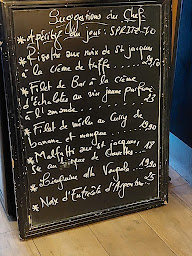 Suggestions du Chef
* Apéritif du jour: SPRITZ 7,0
* Risotto aux noix de st jacques
à la crème de truffe
* Filet de Bar à la crème
d'échalotes au vin jaune parfumé
à l' 23
* Filet de au curry de
banane et mangue 19,90
* Malfatti aux st jacques,
sur 18
* Linguine alle Vongole 19,90
* Noix d'Entrecôte d'Argentine 23